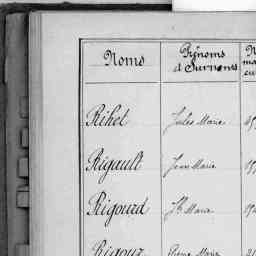 Noms Prénoms et Surnoms
Rihet Jules Marie
Rigault Jean Marie
Rigourd Marie
Rigour Pierre Marie